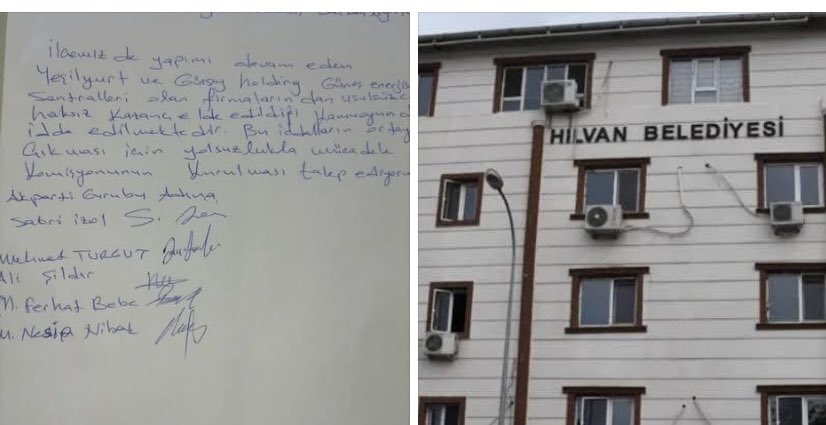 İlçemiz de yapımı devam eden
Yeşilyurt ve Gürsoy holding Güneş enerjisi
Santralleri olan firmaların dan usulsüz
haksız kazanç elde edildiği kamuoyun
idda edilmektedir. Bu iddaların ortay
Çıkması için yolsuzlukla mücadele
Komisyonunun Kurulması talep ediyoru
Akparti Gurubu Adına
Sabri izol
Mehmet TURGUT
Ali Şıldır
M. Ferhat Bebe
M. Nesip Nibak
HİLVAN BELEDİYESİ